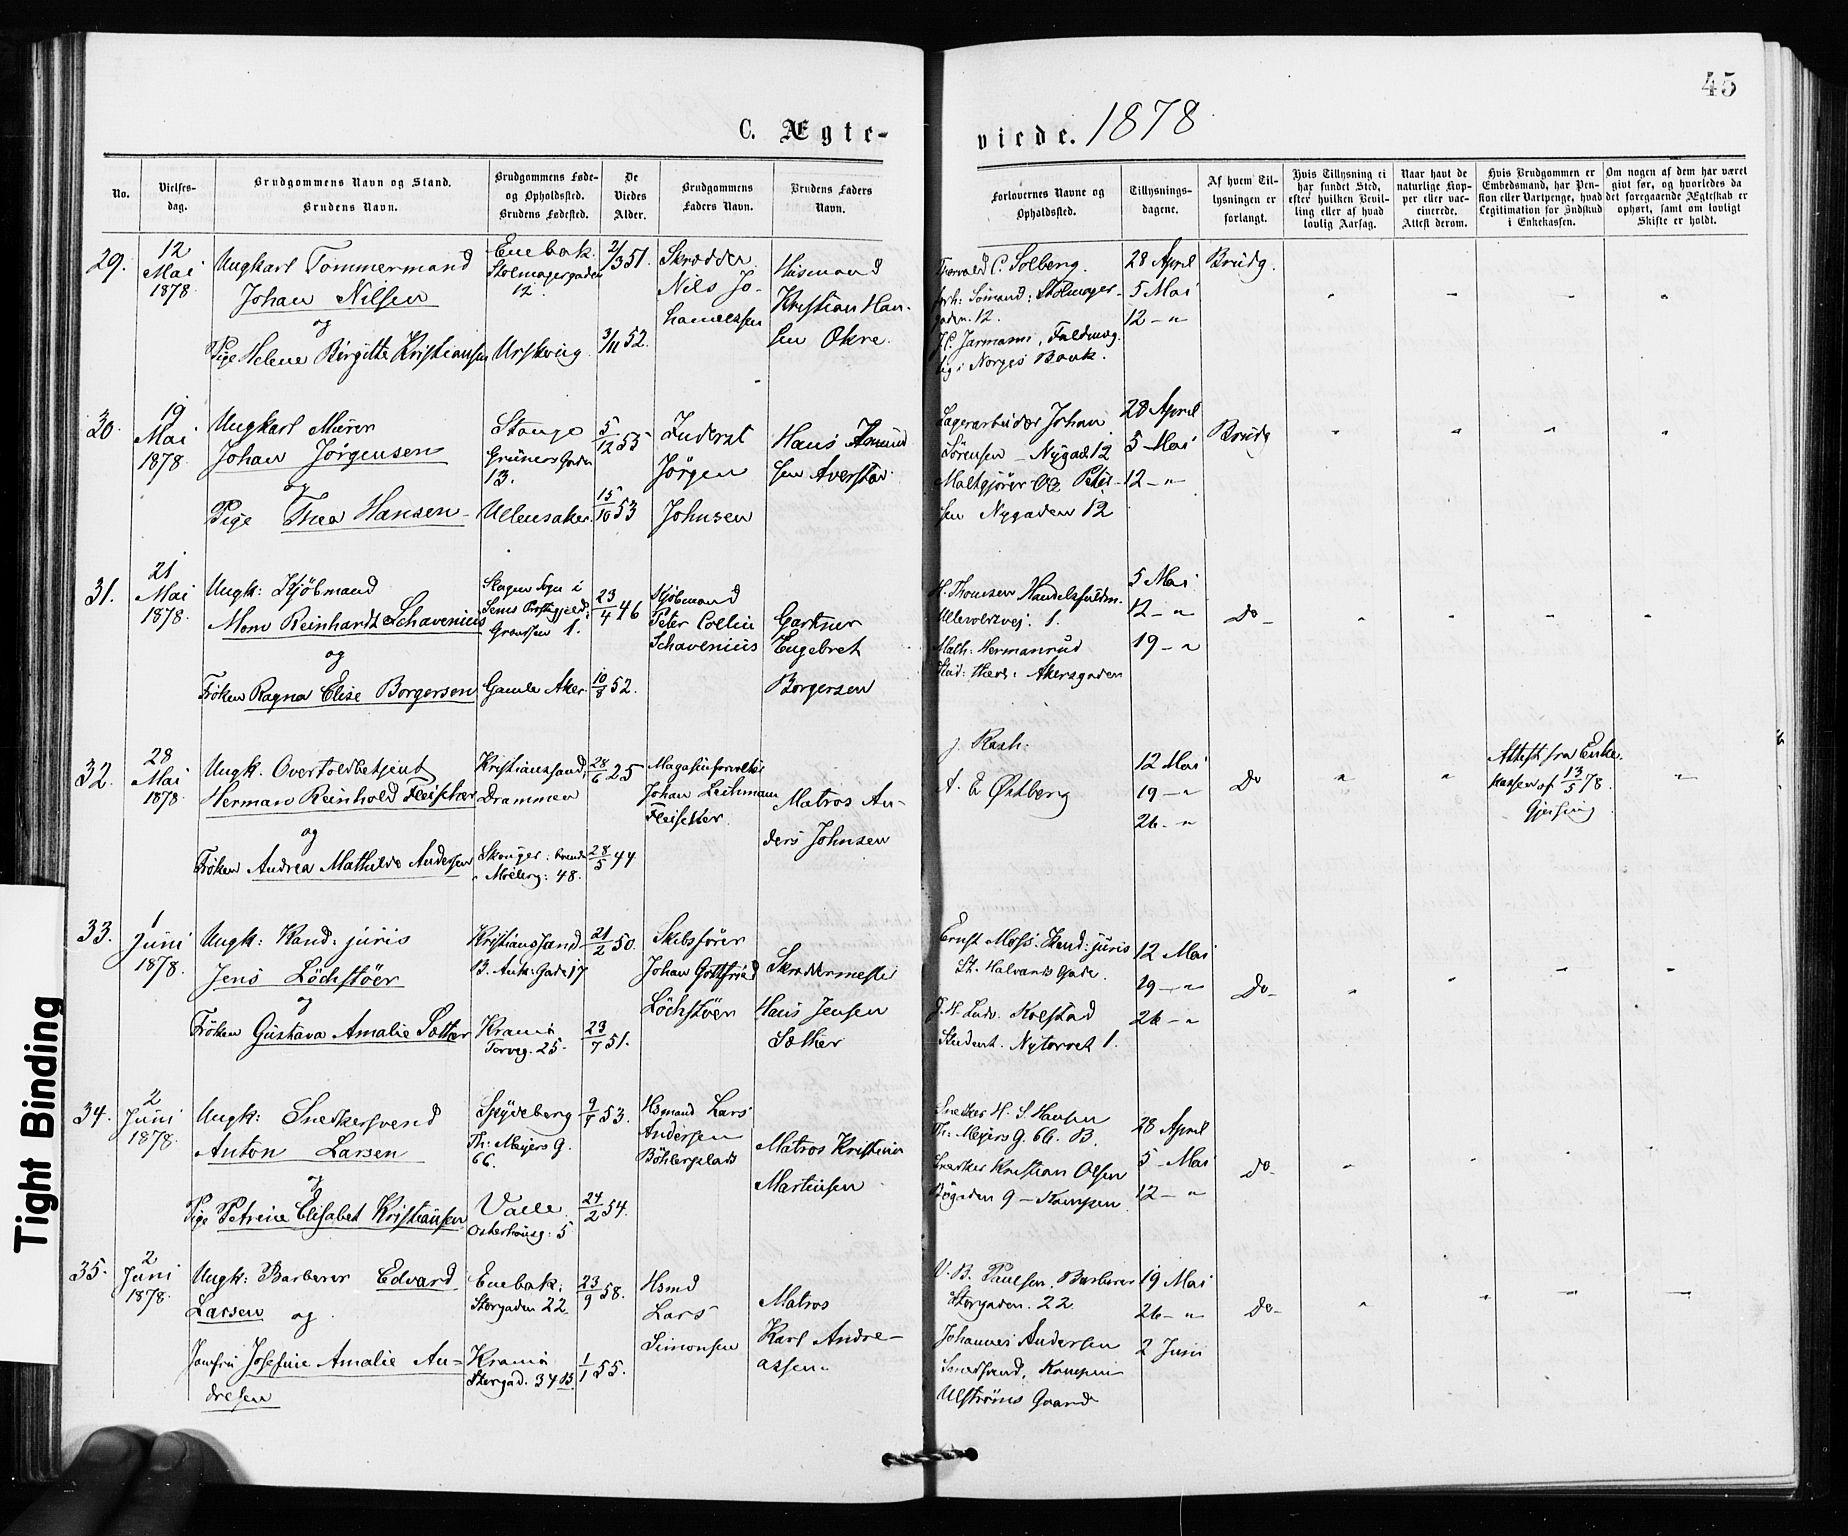 45
C. Ægte-
viede. 1878
No.
Vielses-
dag.
Brudgommens Navn og Stand.
Brudens Navn.
Brudgommens Føde-
og Opholdssted.
Brudens Fødested.
De
Viedes
Alder.
Brudgommens
Faders Navn.
Brudens Faders
Navn.
Forlovernes Navne og
Opholdssted.
Tillysnings-
dagene.
Af hvem Til-
lysningen er
forlangt.
Hvis Tillysning ei
har fundet Sted,
efter hvilken Bevil-
ling eller af hvad
lovlig Aarsag.
Naar havt de
naturlige Kop-
per eller vac-
cinerede.
Attest derom.
Hvis Brudgommen er
Embedsmand, har Pen-
sion eller Vartpenge, hvad
Legitimation for Indskud
i Enkekassen.
Om nogen af dem har været
givt før, og hvorledes da
det foregaaende Ægteskab er
ophørt, samt om lovligt
Skifte er holdt.
29.
12
Mai
1878
Ungkarl Tømmermand
Johan Nilsen
og
Pige Helene Birgitte Kristiansen
Enebak
Stolmagergaden
12.
Urskoug
2/3 51.
3/11 52.
Skrædder
Nils Jo-
hannessen
Husmand
Kristian Han-
sen Økre.
Thorvald C. Solberg.
forh: Sømand: Stolmager-
gaden. 12.
Jarmann, Fuldmæg
tig i Norges Bank.
28 April
5 Mai
12 – "
Brudg.
30.
19
Mai
1878.
Ungkarl Murer
Johan Jørgensen
og
Pige Thea Hansen
Stange
Grüners Gaden
13.
Ullensaker
5/12 53
15/10 53
Inderst
Jørgen
Johnsen
Hans Amund
sen Averstad
Lagerarbeider Johan
Sørensen – Nygad 12
Maltgjører Ole Peter-
sen Nygaden 12
28 April
5 Mai
12 – "
Brudg
31.
21
Mai
1878.
Ungk: Kjøbmand
Mons Reinhardt Schavenius
og
Frøken Ragna Elise Borgersen
Slagen Sogn i
Sems Præstegjeld
Grændsen 1.
Gamle Aker
23/4 46
10/8 52.
Kjøbmand
Peter Collin
Schavenius
Gartner
Engebret
Borgersen
H. Thomsen Handelsfuldm.
Ullevoldsvej. 1.
Math: Hermanrud
Stud: Akersgaden
5 Mai
12 – "
19 – "
Do
32.
28
Mai
1878.
Ungk. Overtoldbetjent
Herman Reinhold Fleischer
og
Frøken Andrea Mathilde Andersen
Kristianssand,
Drammen
48.
28/6 25
28/5 44
Magasinforvalter
Johan Leihmann
Fleischer
Matros An-
ders Johnsen
J. Rash:
A. E Østberg
12 Mai
19 – "
26 – "
Do
Attest fra Enke-
kassen af 13/5 78.
33.
1
Juni
1878.
Ungk: Kand: juris
Jens Löchstöer
og
Frøken Gustava Amalie Sæther
Kristianssand
B. Ank: Gade 17
Krania
Torvg. 25.
21/2 50.
23/7 51.
Skibsfører
Johan Gottfried
Löchstöer
Skræddermester
Hans Jensen
Sæther
Ernst Moss. Kand: juris
St. Halvards Gade.
J. H. Ludv. Kolstad
Student. Nytorvet 1.
12 Mai
19 – "
26 – "
Do –
34.
2
Juni
1878.
Ungk: Snedkersvend
Anton Larsen
og
Pige Petrine Elisabet Kristiansen
Spydeberg
Th: Meyers G.
66.
Vaale
Osterhausg: 5
9/7 53.
24/2 54.
Hsmand Lars
Andersen
Bøhlerplads
Matros Kristian
Martinsen
Snedker H. S. Hansen
Th: Meyers G. 66. B.
Snedker Kristian Olsen
Bøgaden 9 – Kampen
28 April
5 – Mai
12 – "
Do –
35.
2
Juni
1878.
Ungk: Barberer Edvard
Larsen og
Jomfru Josefine Amalie An-
dresen
Enebak:
Storgaden 22.
Krania
Storgad. 34 B
23/9 58.
1/1 55.
Hsmd
Lars
Simonsen
Matros
Karl Andre-
assen
V. B. Paulsen. Barberer
Storgaden. 22
Johannes Andersen
Smedsvend, Kampen
Ulstrøms Gaard
19 Mai
26 – "
2 Juni
Do –
Tight Binding